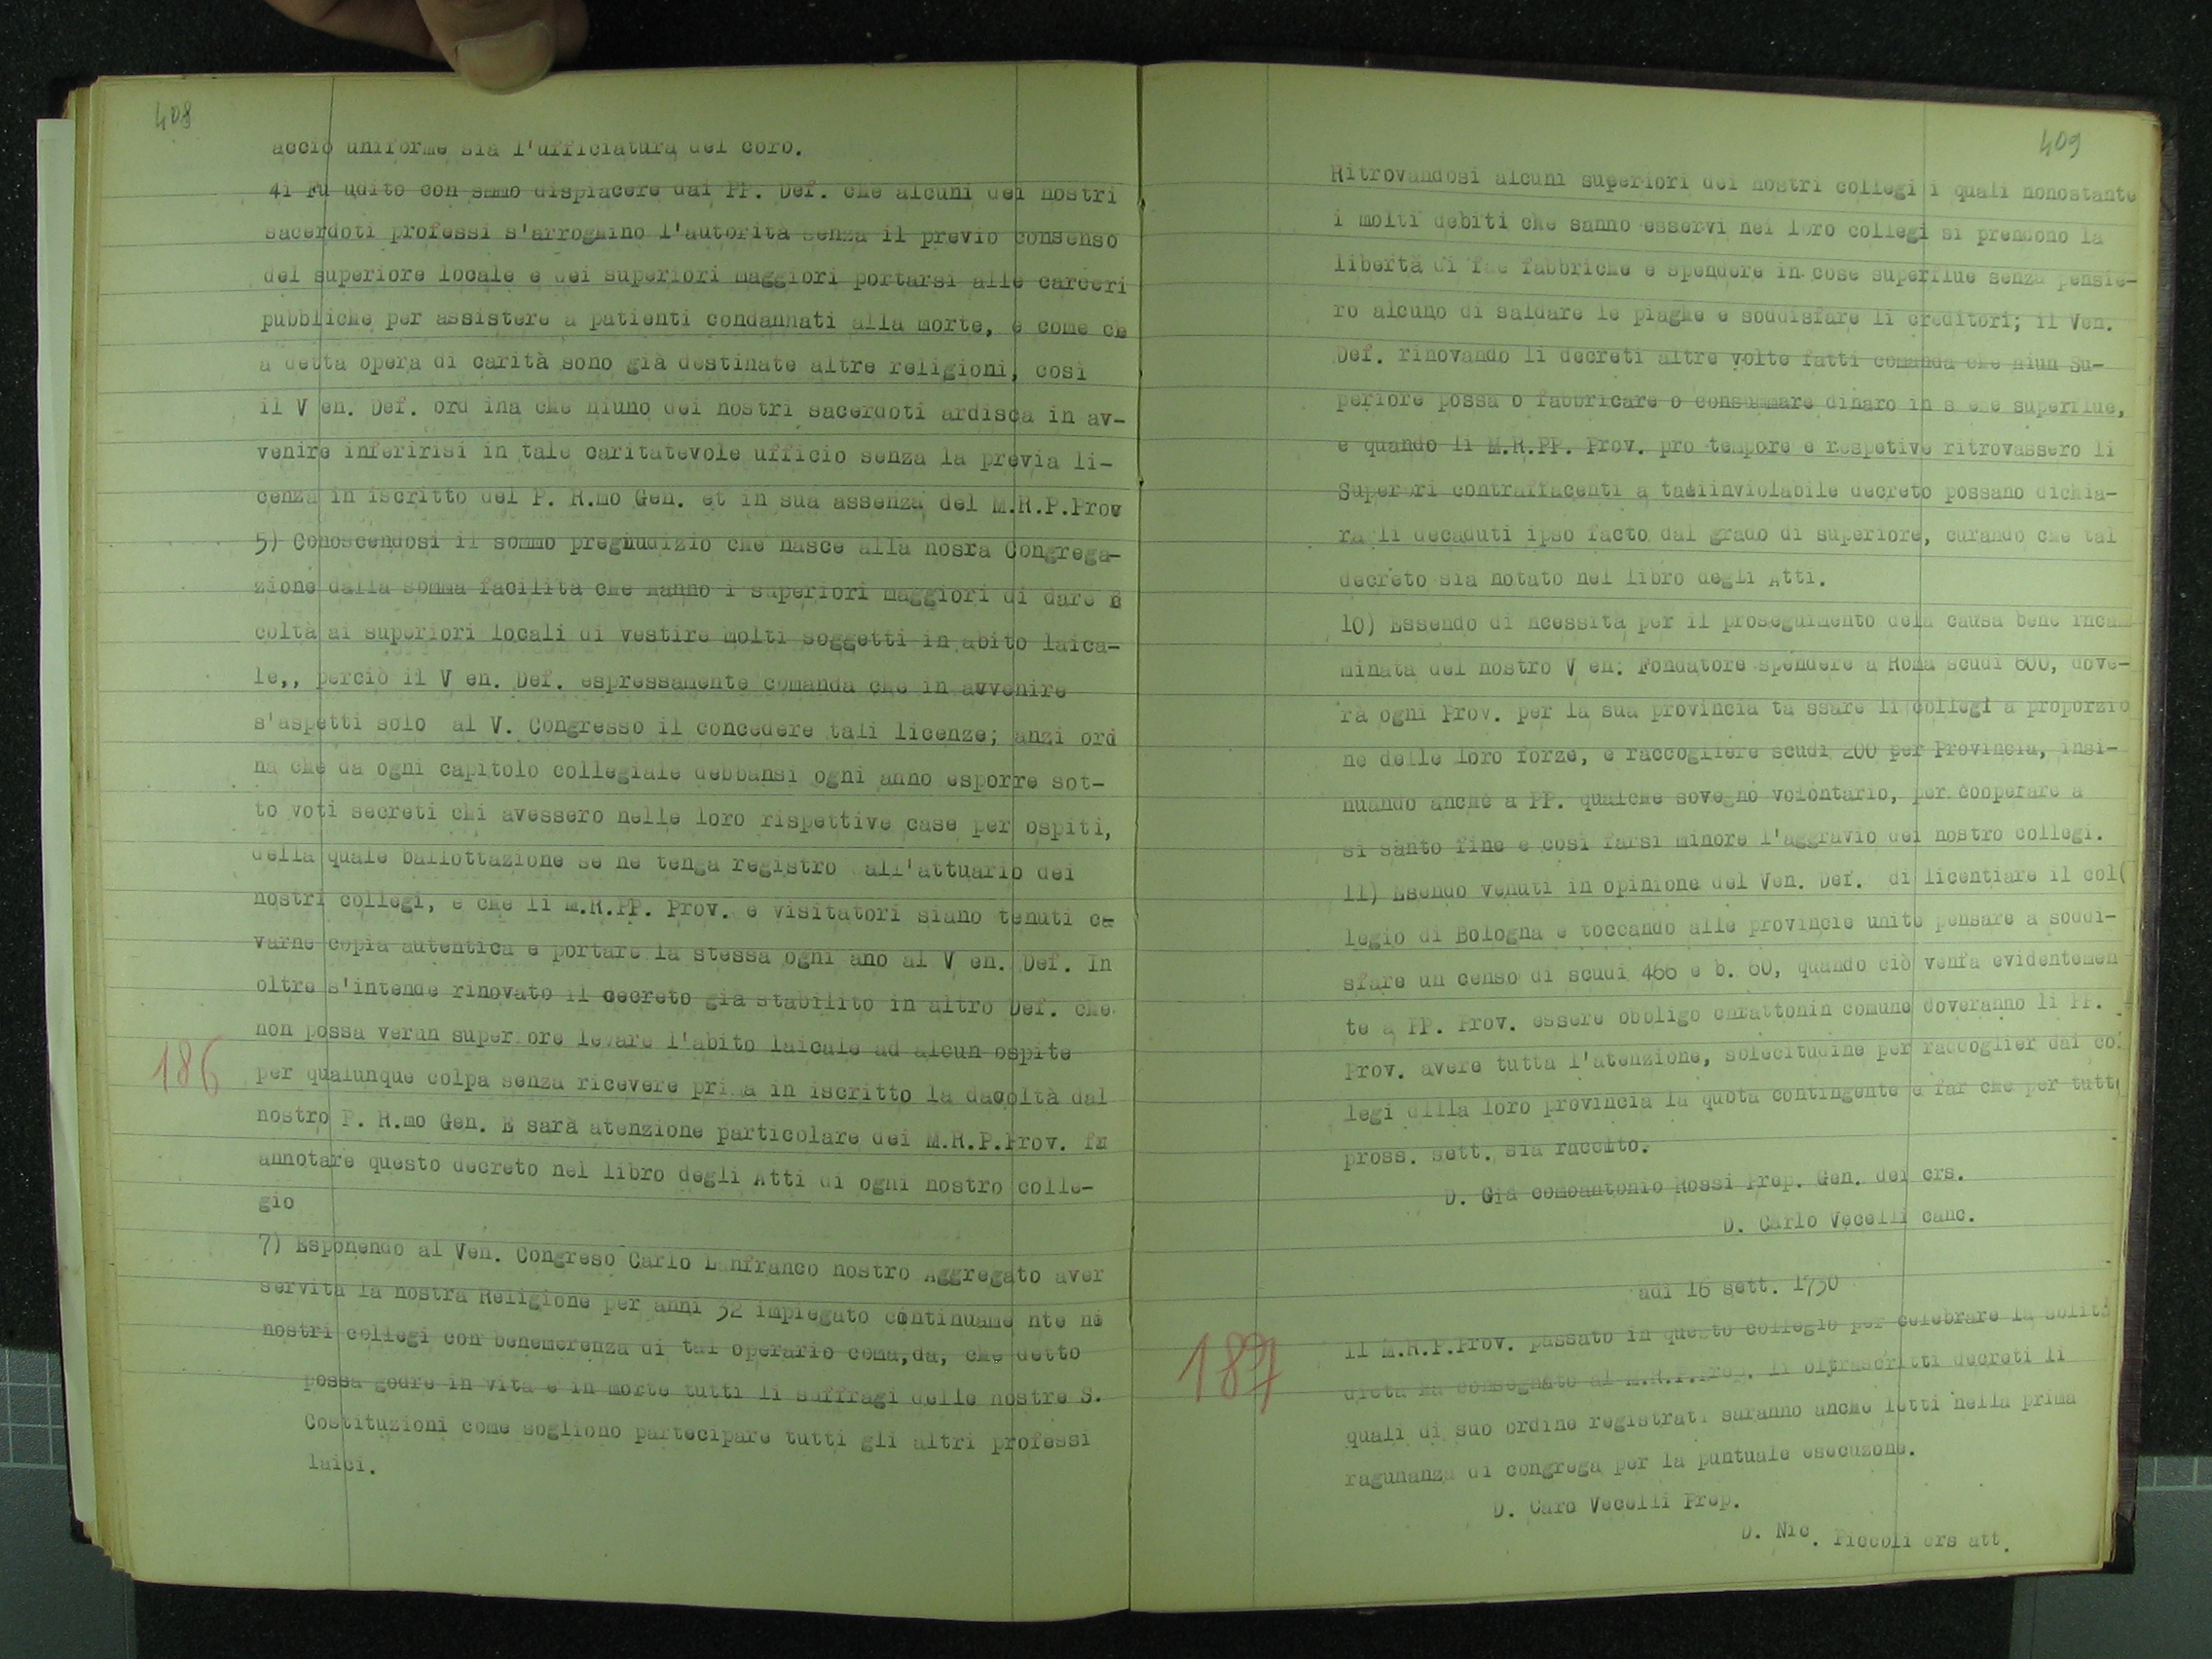 408
acciò uniforme sia l'ufficiatura del coro.
4i Fu udito con smmo dispiacere dai PP. Def. che alcuni dei nostri
sacerdoti professi s'arroghino l'autorità senza il previo consenso
del superiore locale e dei superiori maggiori portarsi alle carceri
pubbliche per assistere a patienti condannati alla morte, e come ce
a detta opera di carità sono già destinate altre religioni, così
il V en. Def. ord ina che niuno dei nostri sacerdoti ardisca in av-
venire inferirisi in tale caritatevole ufficio senza la previa li-
cenza in iscritto del P. R.mo Gen. et in sua assenza del M.R.P.Prov
5) Conoscendosi il sommo pregiudizio che nasce alla nosra Congrega-
zione dalla somma facilità che hanno i superiori maggiori di dare
coltà ai superiori locali di vestire molti soggetti in abito laica-
le,, perciò il V en. Def. espressamente comanda che in avvenire
s'aspetti solo al V. Congresso il concedere tali licenze; anzi ord
na che da ogni capitolo collegiale debbansi ogni anno esporre sot-
to voti secreti chi avessero nelle loro rispettive case per ospiti,
della quale ballottazione se ne tenga registro all'attuario dei
nostri collegi, e che li M.R.PP. Prov. e visitatori siano tenuti ca
varne copia autentica e portare la stessa ogni ano al V en. Def. In
oltre s'intende rinovato il decreto già stabilito in altro Def. che
non possa verun superiore levare l'abito laicale ad alcun ospite
186
per qualunque colpa senza ricevere prima in iscritto la dacoltà dal
nostro P. R.mo Gen. E sarà atenzione particolare dei M.R.P.Prov. fa
annotare questo decreto nel libro degli Atti di ogni nostro colle-
gio
7) Esponendo al Ven. Congreso Carlo Lanfranco nostro Aggregato aver
servita la nostra Religione per anni 32 impiegato continuame nte ne
nostri collegi con benemerenza di tal operario coma,da, che detto
possa godre in vita e in morte tutti li suffragi delle nostre S.
Costituzioni come sogliono partecipare tutti gli altri professi
laici.
409
Ritrovandosi alcuni superiori dei nostri collegi i quali nonostante
i molti debiti che sanno esservi nei loro collegi si prendono la
libertà di fae fabbriche e spendere in cose superflue senza pensie-
ro alcuno di saldare le piaghe e soddisfare li creditori; il Ven.
Def. rinovando li decreti altre volte fatti comanda che niun Su-
periore possa o fabbricare o consummare dinaro in superflue,
e quando li M.R.PP. Prov. pro tempore e respetive ritrovassero li
Superori contraffacenti a inviolabile decreto possano dichia-
rarli decaduti ipso facto dal grado di superiore, curando che tal
decreto sia notato nel libro degli Atti.
10) Essendo di ncessità per il proseguimento dela causa bene incam
minata del nostro V en. Fondatore spendere a Roma scudi 600, dove-
rà ogni Prov. per la sua provincia ta ssare li collegi a proporzio
ne delle loro forze, e raccogliere scudi 200 per Provincia, insi-
nuando anche a PP. qualche sovegno volontario, per cooperare a
si santo fine e così farsi minore l'aggravio dei nostro collegi.
11) Esendo venuti in opinione del Ven. Def. di licentiare il col(
legio di Bologna e toccando alle provincie unite pensare a soddi-
sfare un censo di scudi 466 e b. 60, quando ciò venfa evidentemen
te a PP. Prov. essere obbligo in comune doveranno li PP.
Prov. avere tutta l'atenzione, solecitudine per raccoglier dai col
legi dllla loro provincia la quota contingente e far che per tutto
pross. sett. sia raccolto.
D. Gia comoantonio Rossi Prep. Gen. dei crs.
D. Carlo Vecelli canc.
adi 16 sett. 1730
187
Il M.R.P.Prov. passato in questo collegio per celebrare la solita
dieta ha consegnato al M.R.P.Prep. li oltrascritti decreti li
quali di suo ordine registrati saranno anche letti nella prima
ragunanza di congrega per la puntuale esecuzone.
D. Caro Vecelli Prep.
D. Nic. Piccoli crs att.